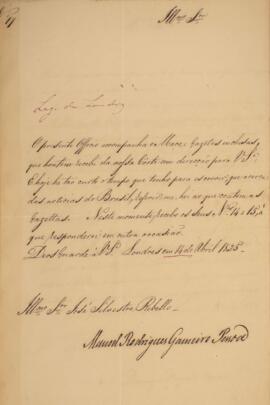 Illmo Sr
Leg. de Londres
O presente Officio acompanha o Masso Gazetas inclusas,
que hontem recebi da nossa Corte com direcção para V.S.
He tão curto o tempo que tenho para escrever, que acerca
das noticias do Brasil, refiro-me ao que contem as
Gazettas. Neste momento recebo os seus Nos 14 e 15, a
que responderei em outra occasião.
Deos Guarde a V.S. Londres em 14 de Abril 1825.
Illmo Snr José Silvestre Rebello
Manoel Rodrigues Gameiro Pessoa